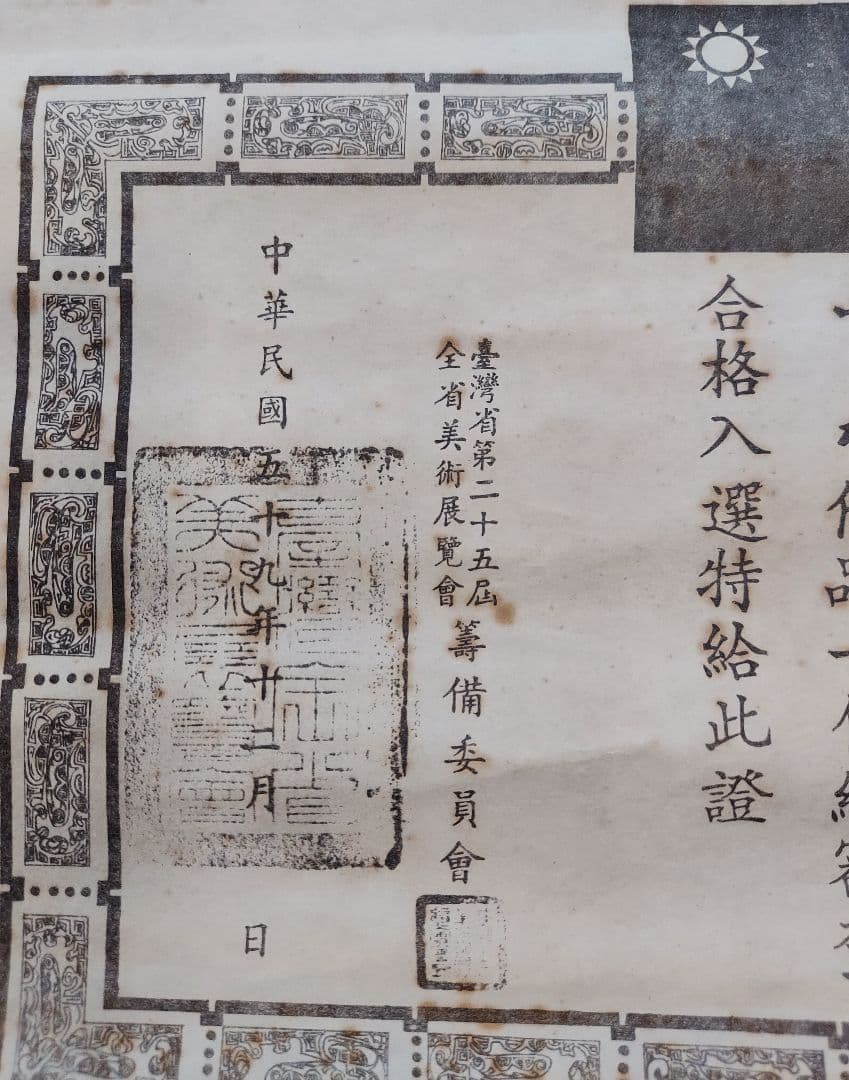 作品一
合格入選特給此證
臺灣省第二十五屆
全省美術展覽會
籌備委員會
中華民國五十九年十二月 日
臺灣省全省
美術展覽會